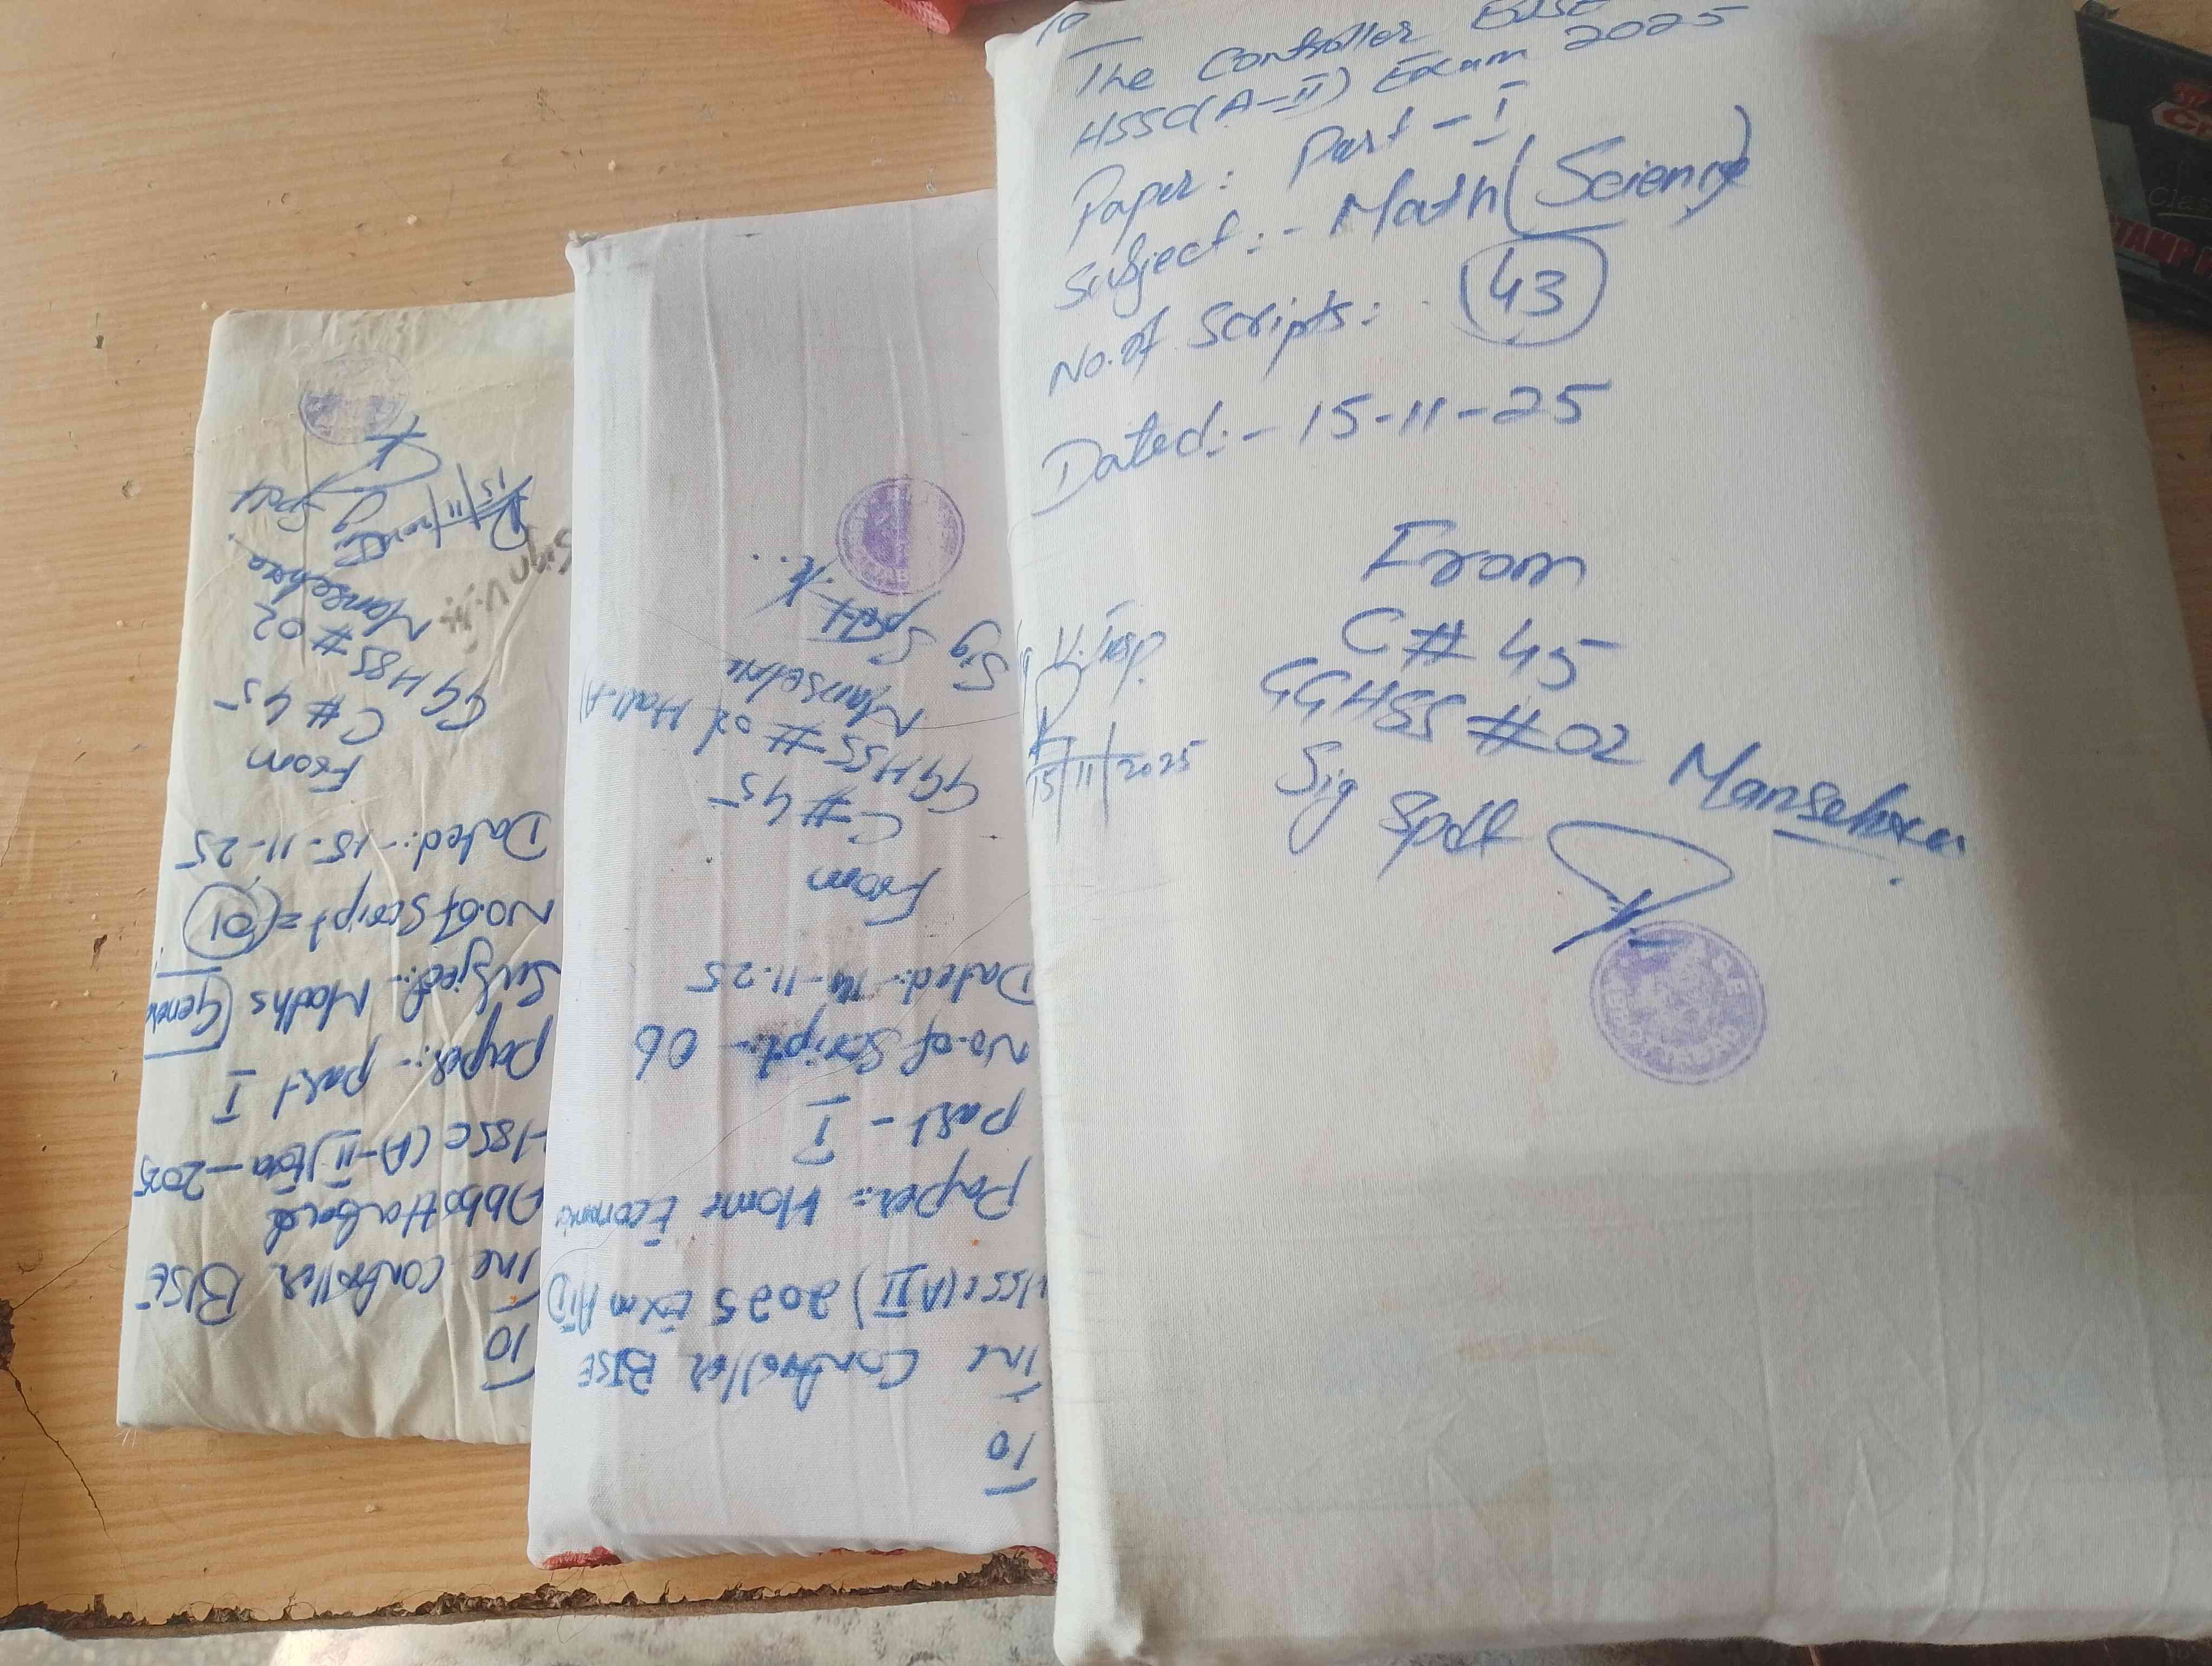 To
The Controller BISE
HSSC(A-II) Exam 2025
Paper: Part-I
Subject:- Math (Science)
No. of Scripts: 43
Dated:- 15-11-25
From
C# 45
GGHSS #02 Mansehra
Sig Spdt
V. Insp.
15/11/2025
To
The Controller BISE
HSSC (A II) 2025 Exm ATD
Paper:- Home Economics
Part - I
No. of Script:- 06
Dated:- 14-11-25
From
C# 45
GGHSS # 02 Hall-A
Mansehra
Sig Spdt
To
The Controller BISE
Abbottabad
HSSC (A-II) 2025
Paper:- Part I
Subject:- Maths (General
No. of Script = 01
Dated:- 15-11-25
From
C# 45
GGHSS # 02
Mansehra.
Sig Spdt
15/11/2025
Sign V.